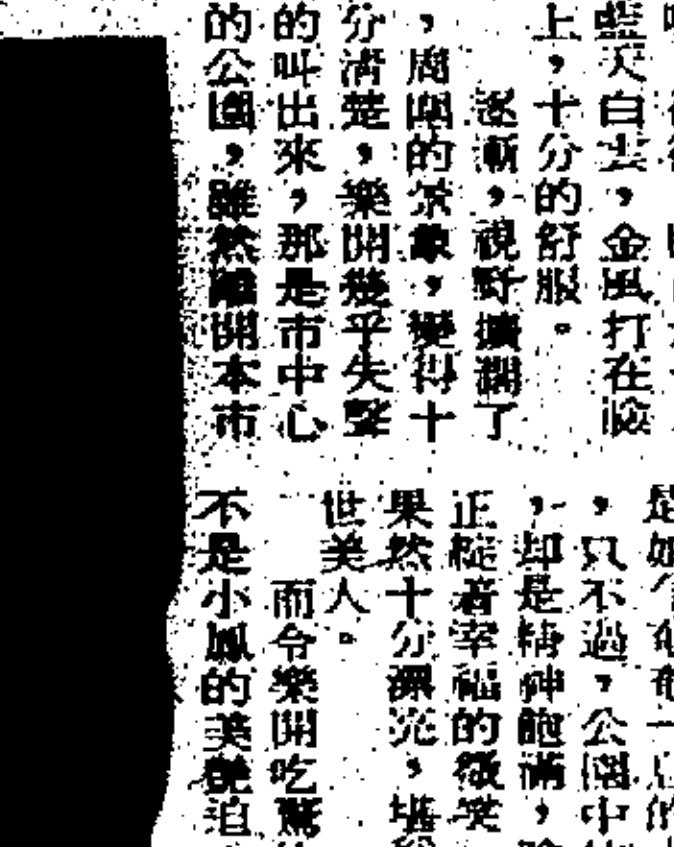 藍天白雲，金風打在臉
上，十分的舒服。
逐漸，視野擴濶了
，周圍的景象，變得十
分清楚，樂開幾乎失聲
的叫出來，那是市中心
的公園，雖然離開本市
，只不過，公園中
，却是精神飽滿，
正綻着幸福的微笑
果然十分漂亮，堪稱
世美人。
而令樂開吃驚
不是小鳳的美艷迫